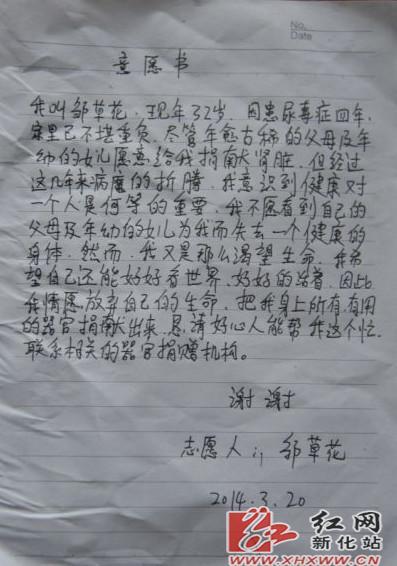 No.
Date
意愿书
我叫邹草花，现年32岁，因患尿毒症四年，
家里已不堪重负，尽管年愈古稀的父母及年
幼的女儿愿意给我捐献肾脏，但经过
这几年来病魔的折腾，我意识到健康对
一个人是何等的重要，我不愿看到自己的
父母及年幼的女儿为我而失去一个健康的
身体，然而，我又是那么渴望生命，我希
望自己还能好好看世界，好好的活着，因此
我情愿放弃自己的生命，把我身上所有有用
的器官捐献出来，恳请好心人能帮我这个忙
联系相关的器官捐赠机构。
谢谢
志愿人：邹草花
2014.3.20
红网
新化站
WWW.XHXWW.CN